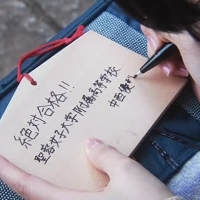 絶対合格!!
聖蓉女子大学附属高等学校
中西優